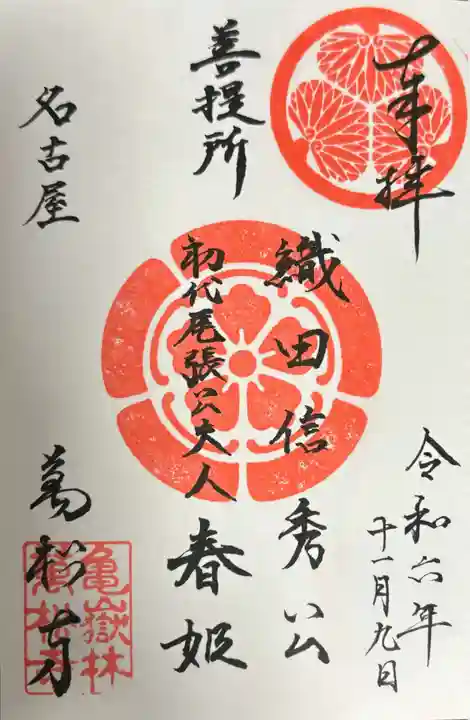 奉拝
令和六年
十一月九日
織田信秀公
菩提所
初代尾張公夫人春姫
名古屋
萬松寺
亀嶽林
萬松寺